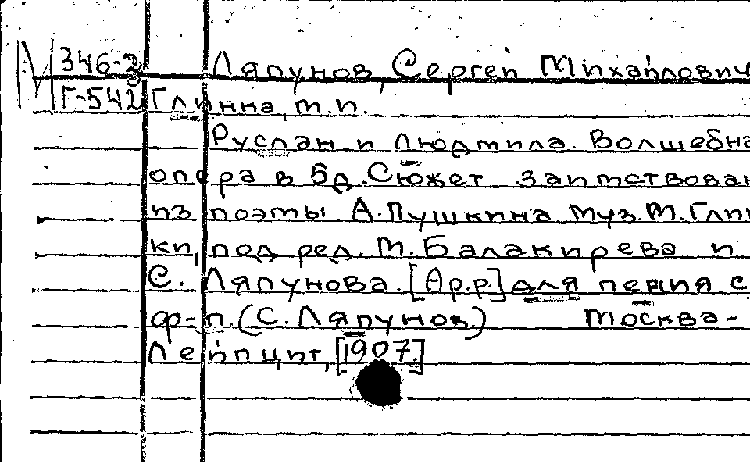 346-3 Ляпунов, Сергей Михайлович
Г-542 Глинка, М. И.
Руслан и Людмила. Волшебна
опера в 5 д. Сюжет заимствован
из поэмы А. Пушкина муз. М. Глин
ки, под ред. М. Балакирева и
С. Ляпунова. [Ар.р] для пения с
ф-п. (С. Ляпунов.) Москва-
Лейпциг, [1907.]